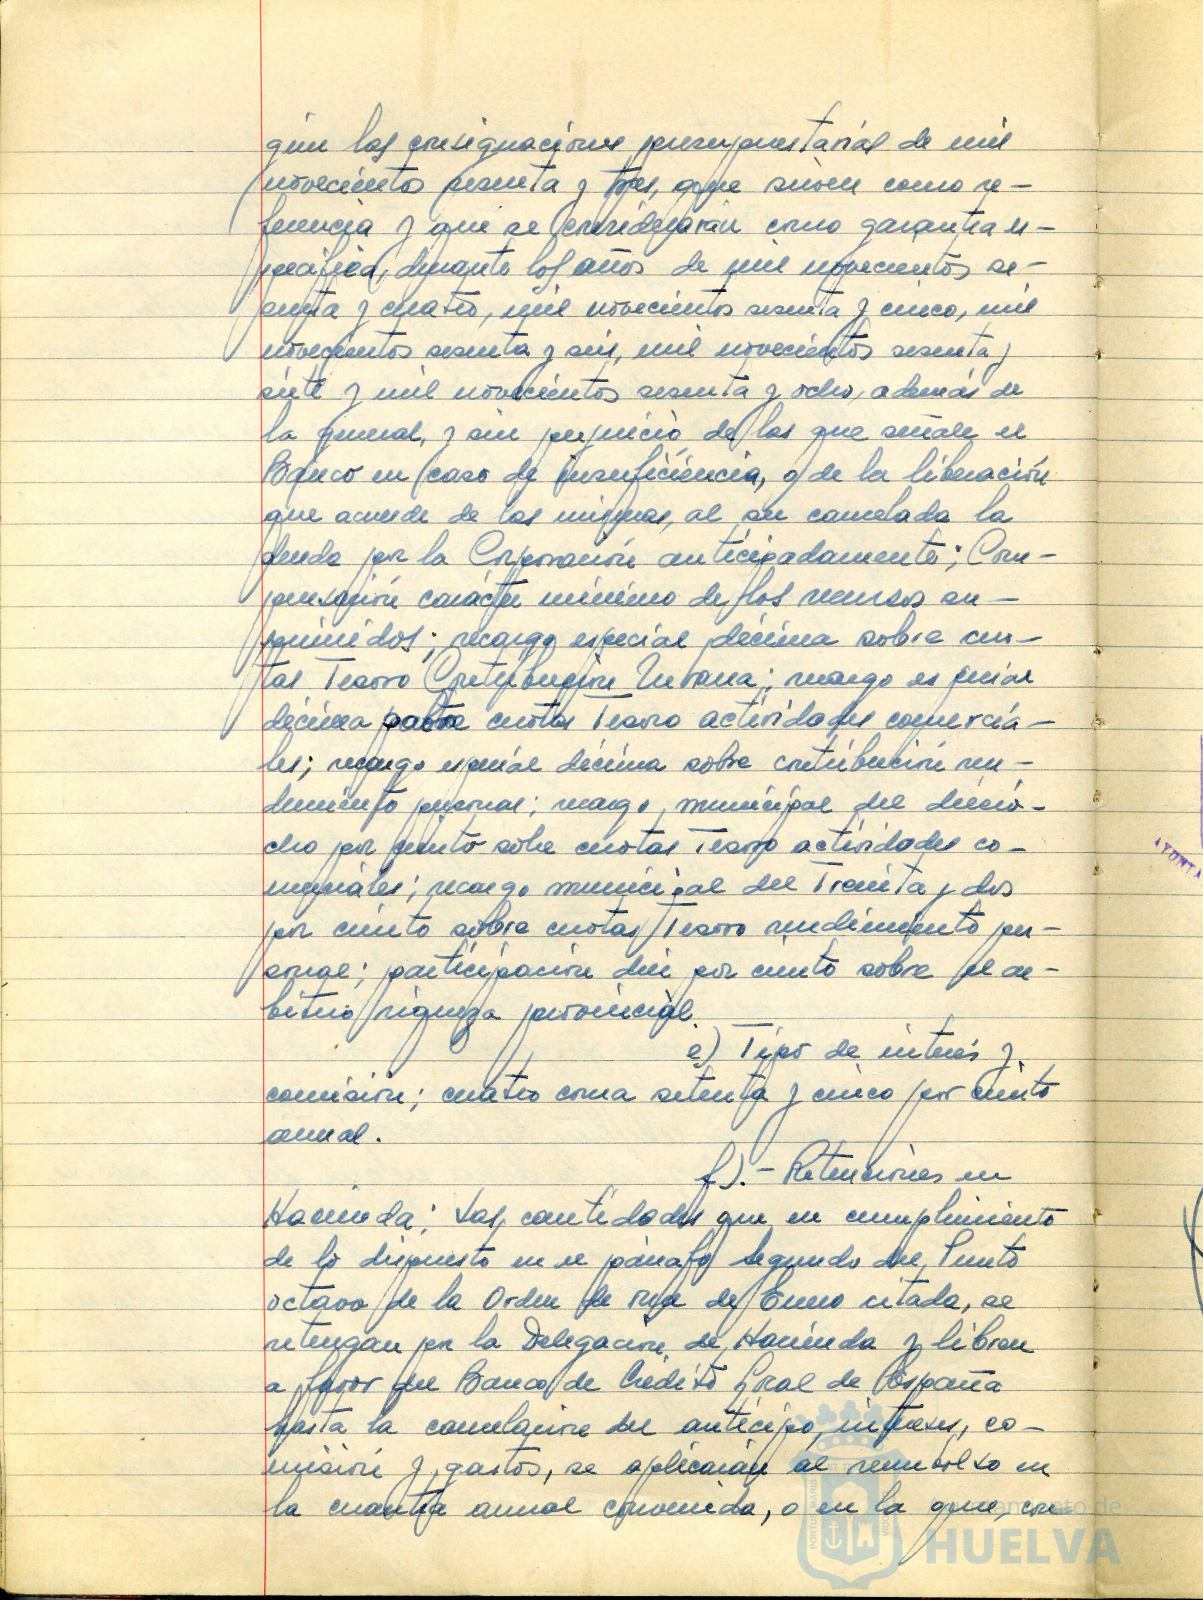 gún las consignaciones presupuestarias de mil
novecientos sesenta y tres, que sirven como re-
ferencia y que se considerarán como garantía es-
pecífica, durante los años de mil novecientos se-
senta y cuatro, mil novecientos sesenta y cinco, mil
novecientos sesenta y seis, mil novecientos sesenta y
siete y mil novecientos sesenta y ocho, además de
la general, y sin perjuicio de las que señale el
Banco en caso de insuficiencia, o de la liberación
que acuerde de las mismas, al ser cancelada la
deuda por la Corporación anticipadamente; Com-
pensación carácter mínimo de los recursos su-
primidos; recargo especial décima sobre cuo-
tas Tesoro Contribución Urbana; recargo especial
décima sobre cuotas Tesoro actividades comercia-
les; recargo especial décima sobre contribución ren-
dimiento personal; recargo municipal del diecio-
cho por ciento sobre cuotas Tesoro actividades co-
merciales; recargo municipal del Treinta y dos
por ciento sobre cuotas Tesoro rendimiento per-
sonal; participación diez por ciento sobre el ar-
bitrio riqueza provincial.
e) Tipo de interés y
comisión; cuatro coma setenta y cinco por ciento
anual.
f).- Retenciones en
Hacienda; Las cantidades que en cumplimiento
de lo dispuesto en el párrafo segundo del Punto
octavo de la Orden de once de Enero citada, se
retengan por la Delegación de Hacienda y libren
a favor del Banco de Crédito Local de España
hasta la cancelación del anticipo, intereses, co-
misión y gastos, se aplicarán al reembolso en
la cuantía anual convenida, o en la que, con
Ayuntamiento de
HUELVA